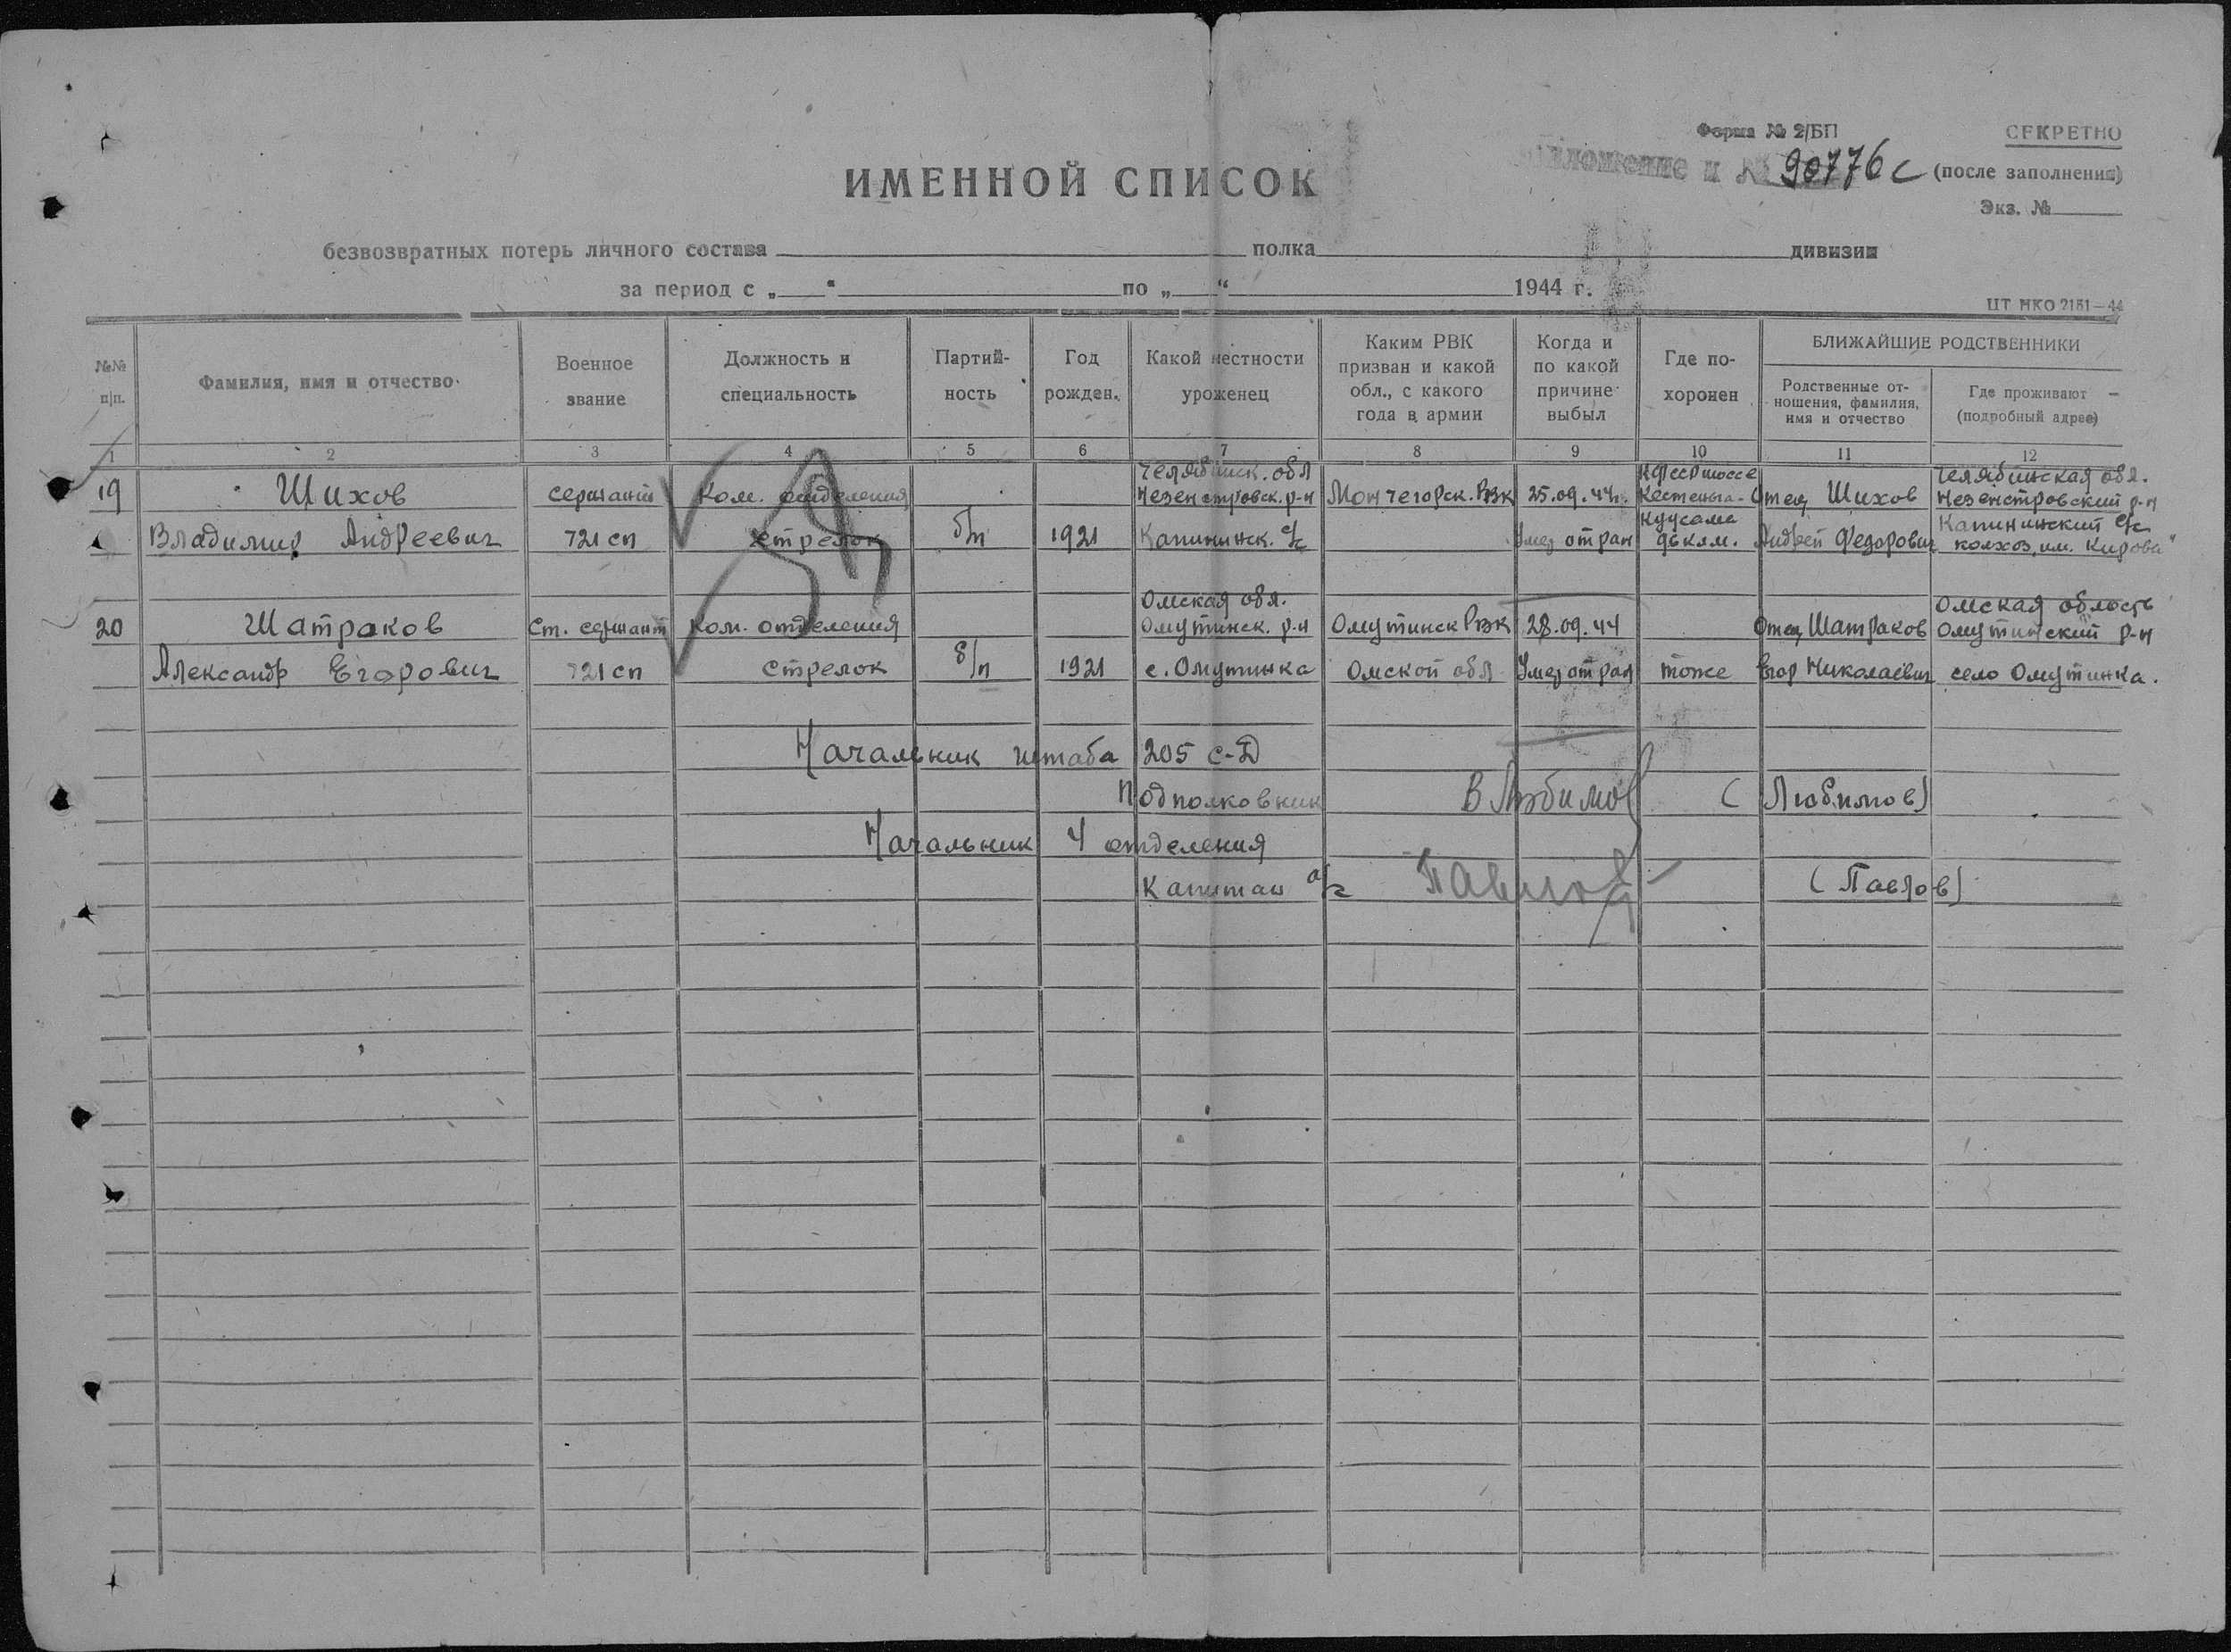 Форма № 2/БП
СЕКРЕТНО
90776с (после заполнения)
Экз. №
ИМЕННОЙ СПИСОК
безвозвратных потерь личного состава полка дивизии
за период с „ “ по „ “ 1944 г.
ЦТ НКО 2151—44
№№ п|п.
Фамилия, имя и отчество
Военное звание
Должность и специальность
Партий-ность
Год рожден.
Какой местности уроженец
Каким РВК призван и какой обл., с какого года в армии
Когда и по какой причине выбыл
Где по-хоронен
БЛИЖАЙШИЕ РОДСТВЕННИКИ
Родственные от-ношения, фамилия, имя и отчество
Где проживают (подробный адрес)
1 2 3 4 5 6 7 8 9 10 11 12
Челябинск. обл КФССР шоссе Челябинская обл.
19 Шихов сержант Ком. отделения р-н Мончегорск. РВК 25.09.44г. Кестеньга- Отец Шихов р-н
Куусама Калининский с/с
Владимир Андреевич 721 сп стрелок б/п 1921 Калининск. с/с Умер от ран 96 клм. Андрей Федорович колхоз „им. Кирова"
Омская обл. Омская область
20 Шатраков Ст. сержант Ком. отделения Омутинск. р-н Омутинск РВК 28.09.44 Отец Шатраков Омутинский р-н
Александр Егорович 721 сп стрелок б/п 1921 с. Омутинка Омской обл Умер от ран тоже Егор Николаевич село Омутинка.
Начальник штаба 205 с-д
Подполковник В Любимов (Любимов)
Начальник 4 отделения
Капитан а/с Павлов (Павлов)